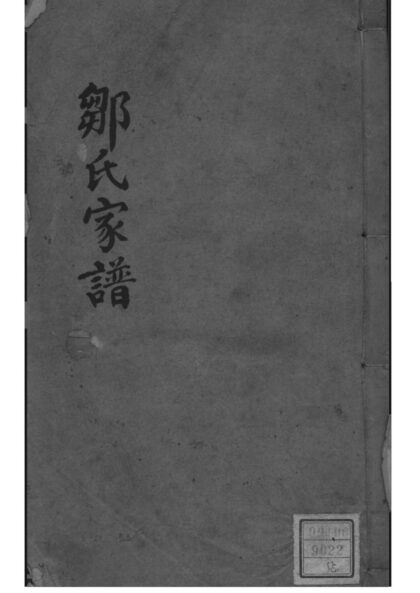 鄒氏家譜
9022